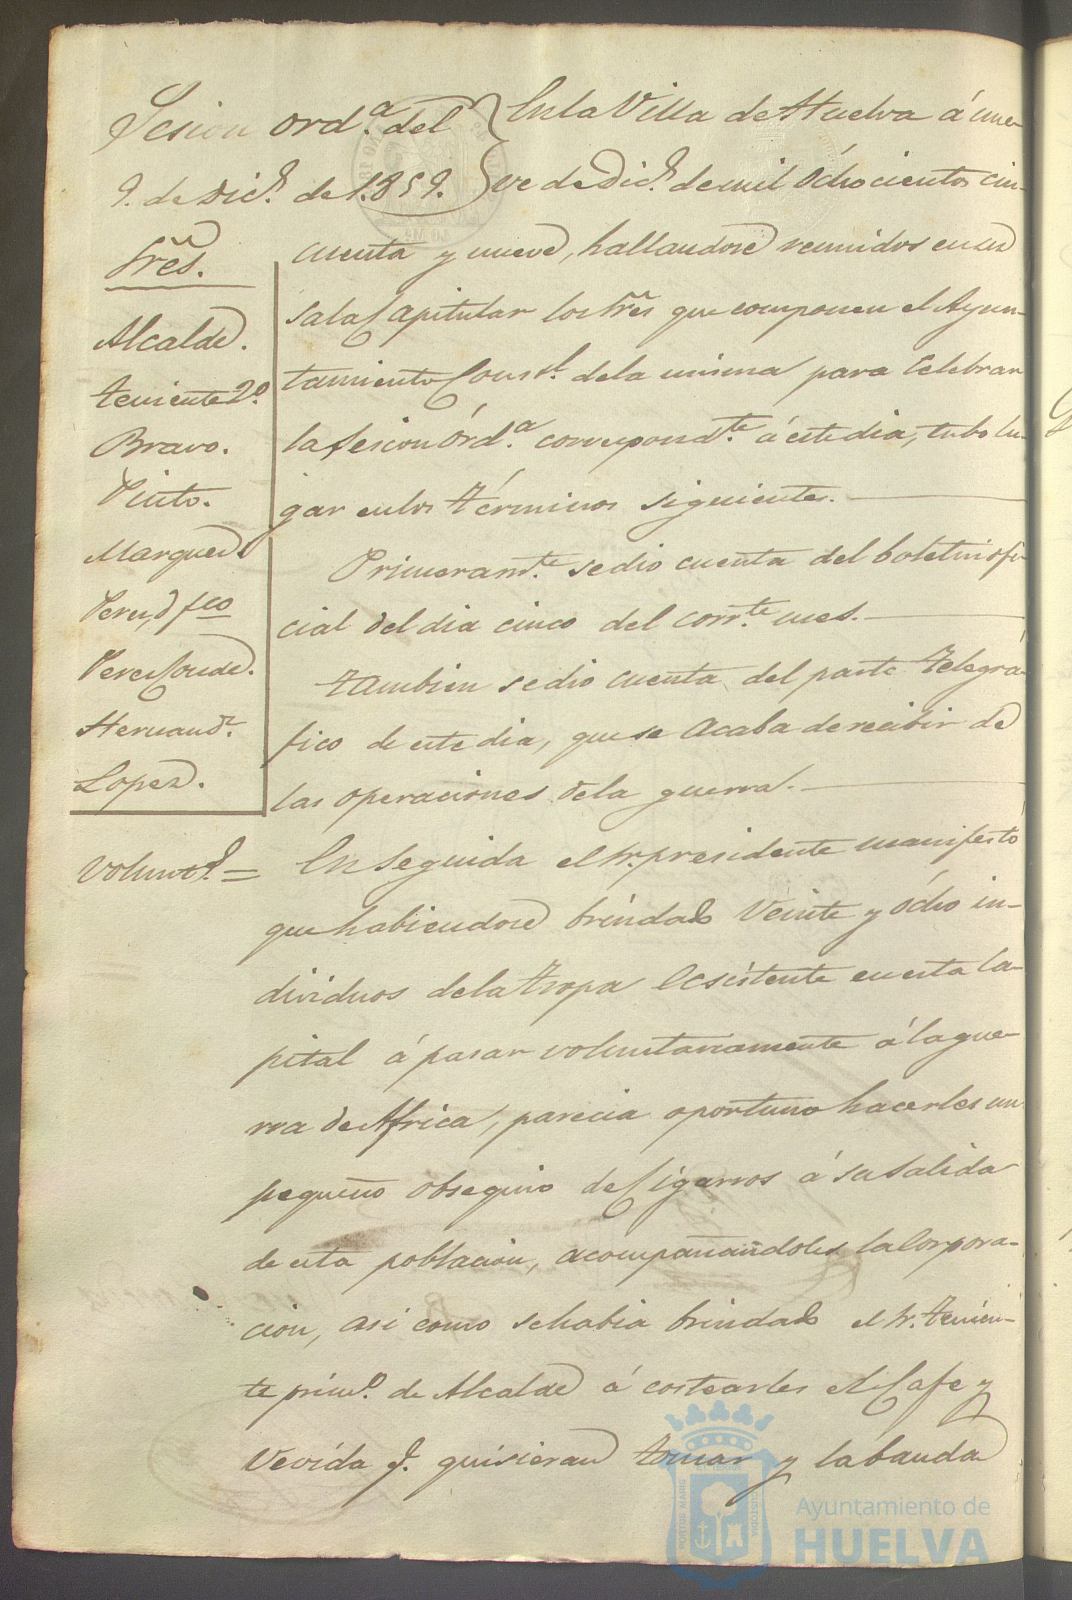 Sesion ord.ª del
9. de Dic.e de 1.859.
Sres.
Alcalde.
teniente 2.º
Bravo.
Pinto.
Marquez
Perez, d fco
Perez Conde.
Hernand.z
Lopez.
Volunt.s =
En la Villa de Huelva á nue-
ve de Dic.e de mil Ochocientos cin-
cuenta y nueve, hallandose reunidos en su
sala Capitular los Sres que componen el Ayun-
tamiento Const.l dela misma para Celebrar
la Sesion Órd.ª correspond.te á este dia, tubo lu-
gar en los términos siguientes.
Primeram.te se dio cuenta del boletin ofi-
cial del dia cinco del corr.te mes.
tambien se dio cuenta del parte telegrá-
fico de este dia, que se acaba de recibir de
las operaciones dela guerra.
En Seguida el Sr. presidente manifestó
que habiendose brindado Veinte y ócho in-
dividuos dela tropa Ecsistente en esta Ca-
pital á pasar voluntariamente á la gue-
rra de Africa, parecia oportuno hacerles un
pequeño obsequio de Cigarros á su salida
de esta poblacion, acompañandoles la Corpora-
cion, asi como se habia brindado el Sr. tenien-
te prim.o de Alcalde á costearles el Cafe y
Vevida q.e quisieran tomar y la banda
PORTUS MARIS
CUSTODIA
Ayuntamiento de
HUELVA